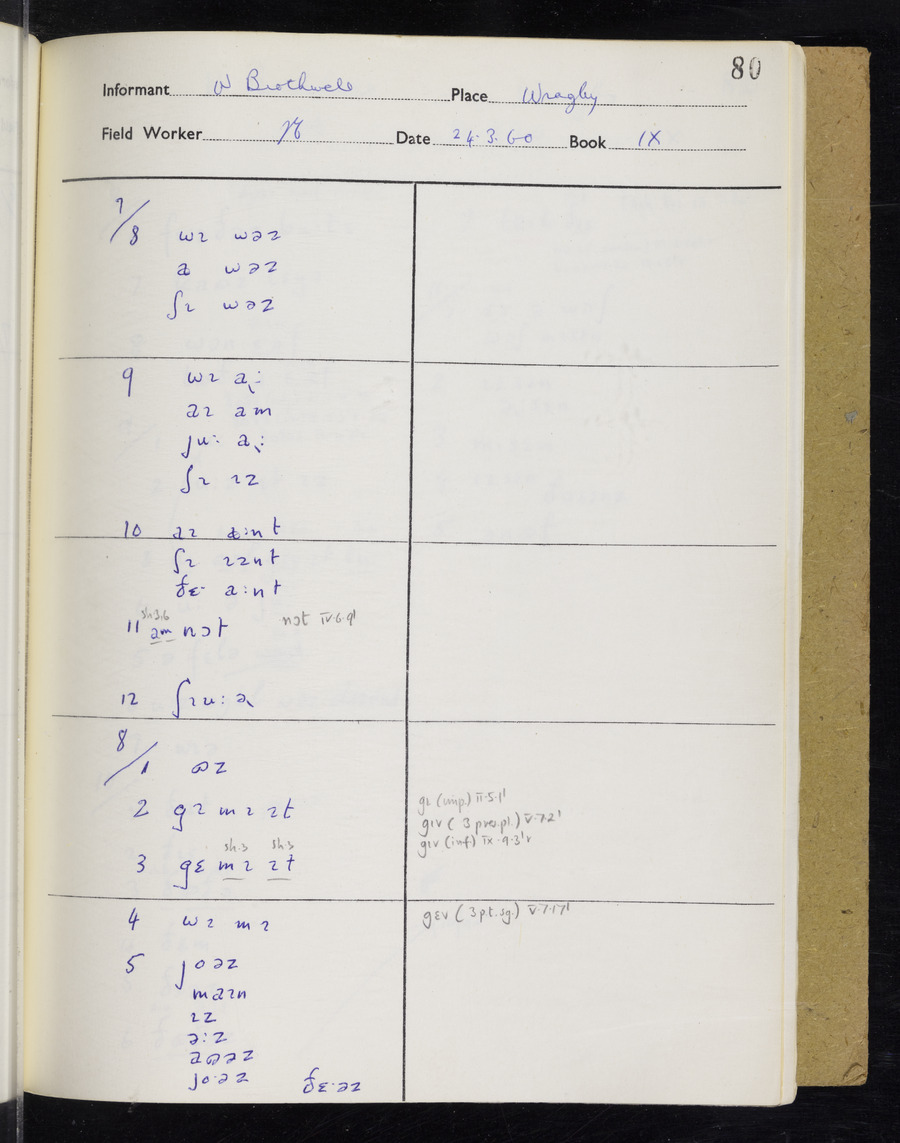 80
Informant W Brothwell Place Wragby
Field Worker Date 24.3.60 Book IX
7/8 wɪ wəz
a wəz
ʃɪ wəz
9 wɪ a˞:
aɪ am
ju: a˞:
ʃɪ ɪz
10 aɪ a:nt
ʃɪ ɪznt
ðɛ· a:nt
sh 3.6
11 am nɔt nɔt IV.6.9'
12 ʃɪu:ə˞
8/1 ʊz
2 gɪ mɪ ɪt gɪ (imp.) II.5.1'
gɪv (3 pres.pl.) V.7.2'
gɪv (inf) IX.9.3'v
sh.3 sh.3
3 gɛ mɪ ɪt
4 wɪ mɪ gɛv (3 p.t. sg.) V.7.17'
5 joəz
maɪn
ɪz
ə:z
aʊəz
jo·əz ðɛ·əz